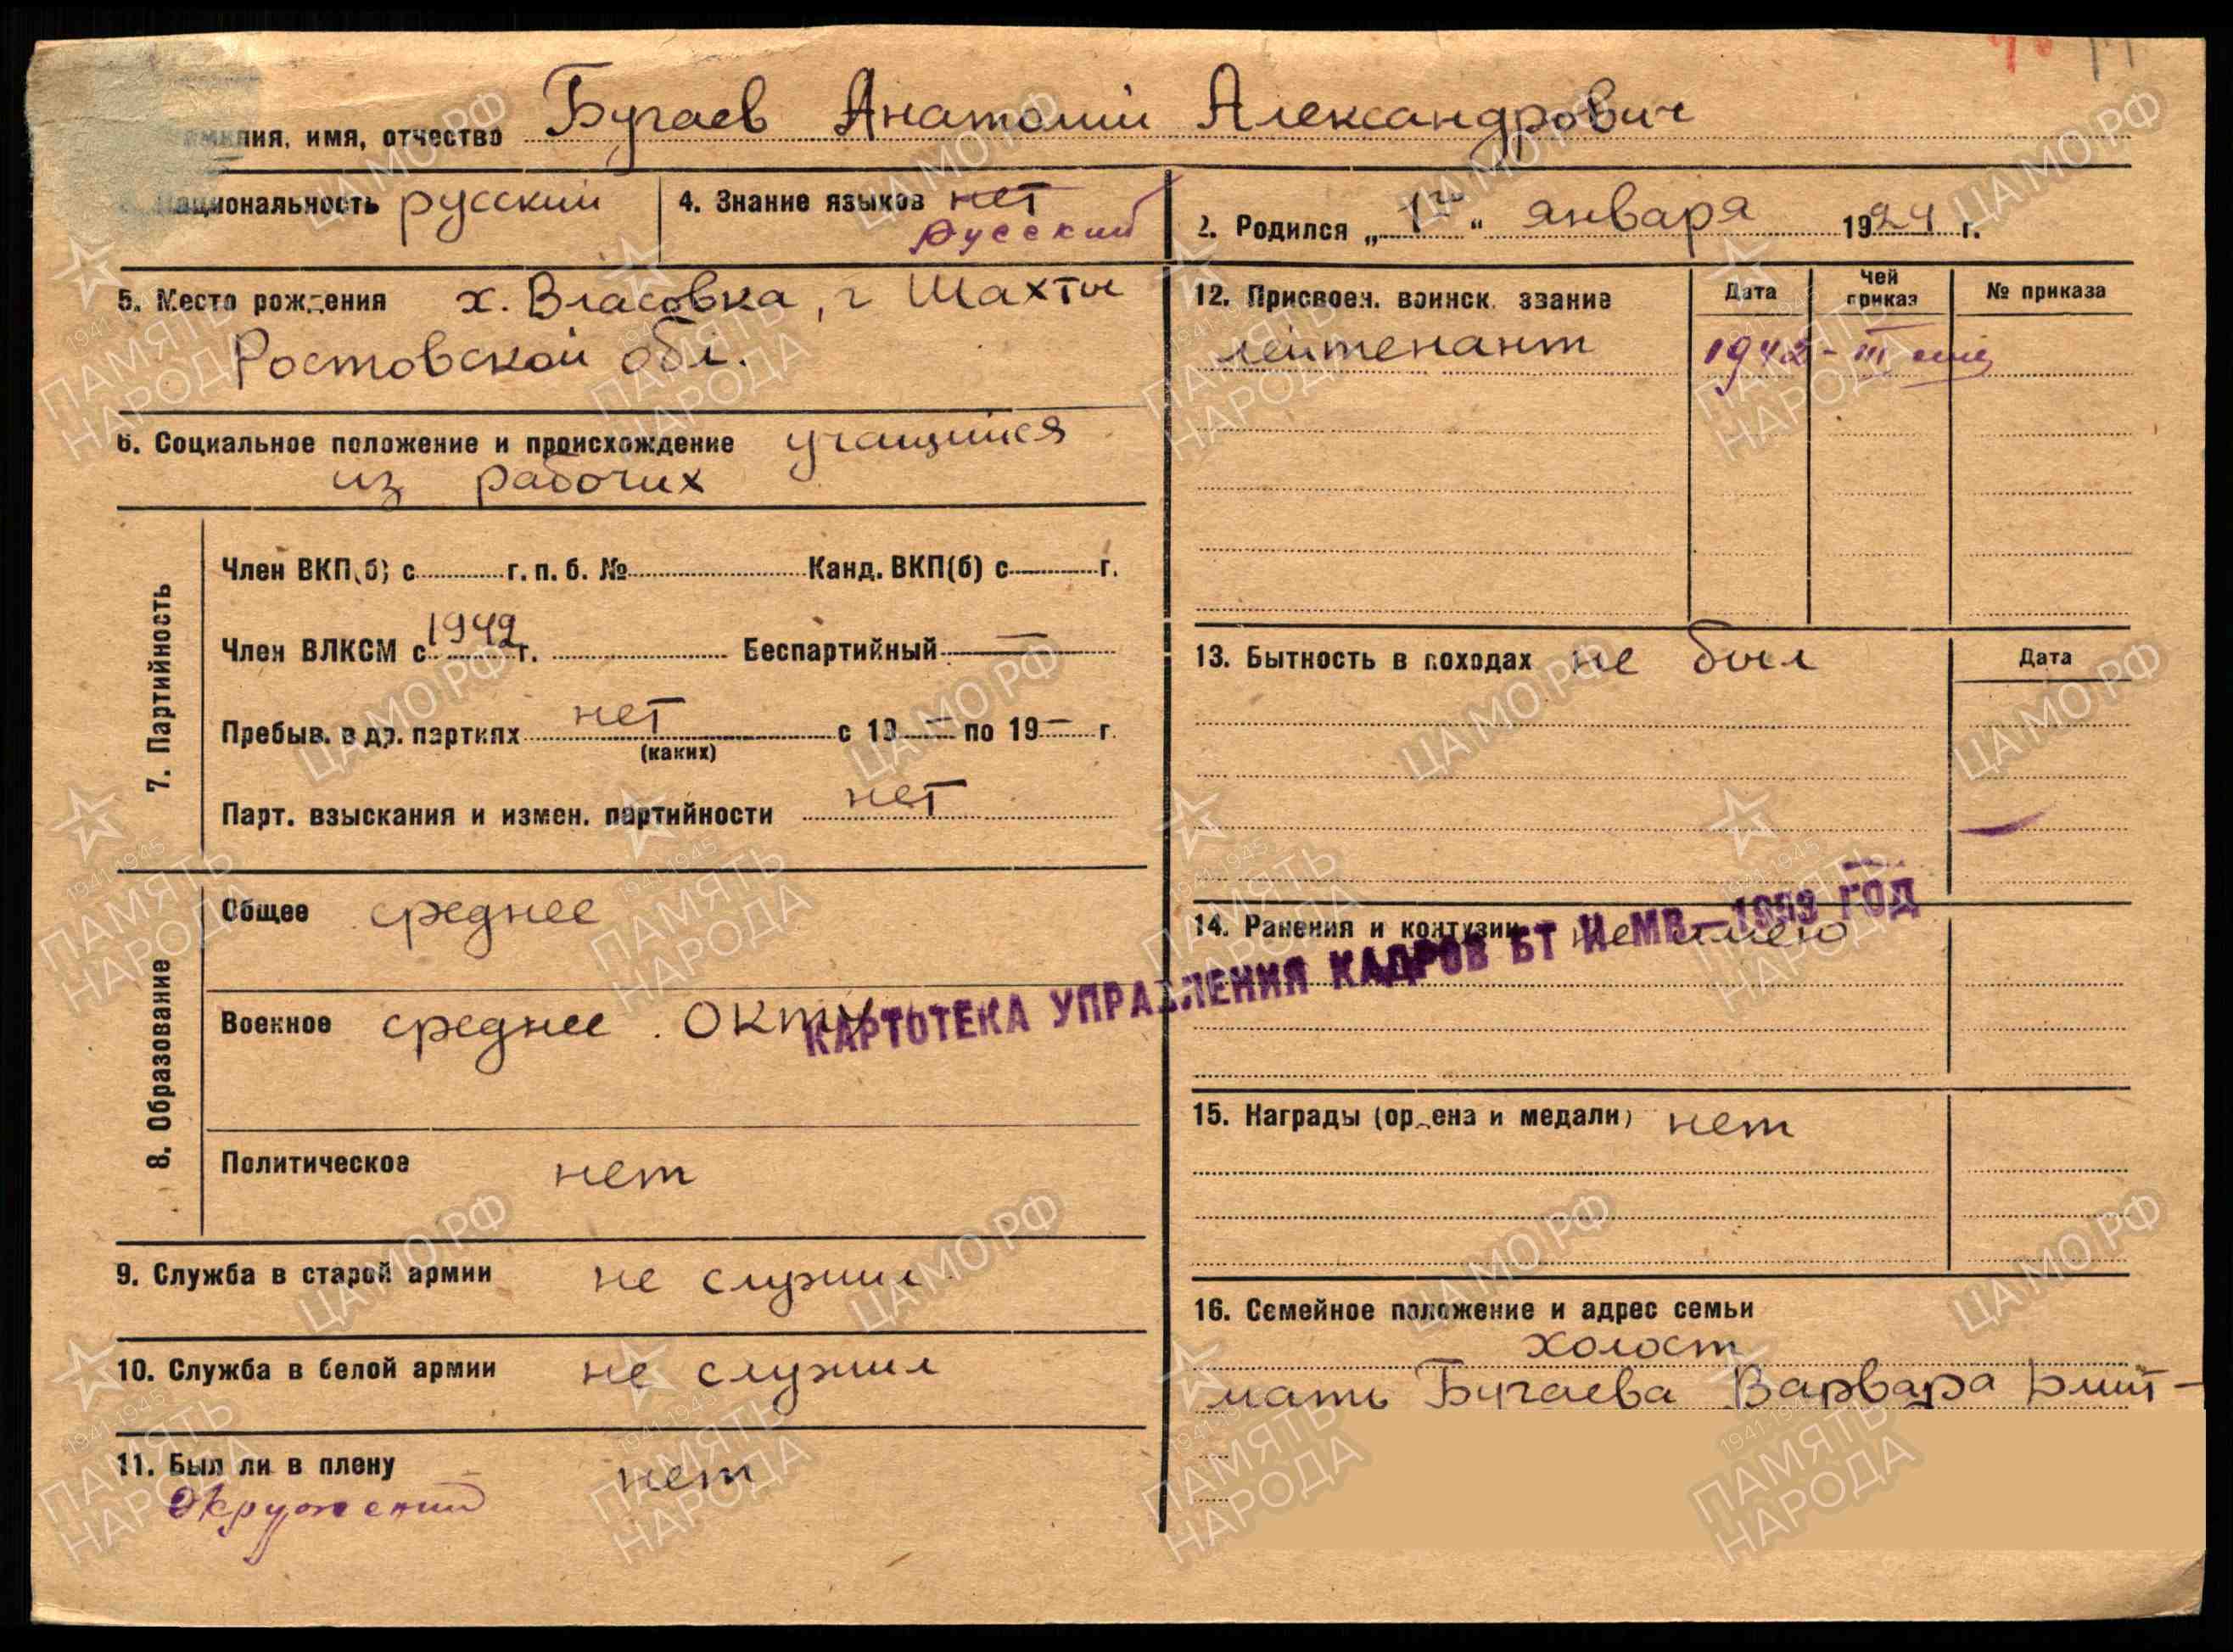 Фамилия, имя, отчество Бугаев Анатолий Александрович
Национальность русский
4. Знание языков нет
русский
2. Родился „ 1го “ января 1924 г.
5. Место рождения х. Власовка, г Шахты
Ростовской обл.
6. Социальное положение и происхождение учащийся
из рабочих
7. Партийность
Член ВКП(б) с г. п. б. № Канд. ВКП(б) с — г.
Член ВЛКСМ с 1942 г. Беспартийный —
Пребыв. в др. партиях нет с 19 — по 19 — г.
(каких)
Парт. взыскания и измен. партийности нет
8. Образование
Общее среднее
Военное среднее. ОКТУ
Политическое нет
9. Служба в старой армии не служил
10. Служба в белой армии не служил
11. Был ли в плену нет
Окружении
12. Присвоен. воинск. звание Дата Чей приказ № приказа
лейтенант 1942 - III
13. Бытность в походах не был Дата
14. Ранения и контузии не имею
КАРТОТЕКА УПРАВЛЕНИЯ КАДРОВ БТ И МВ—1953 ГОД
15. Награды (ордена и медали) нет
16. Семейное положение и адрес семьи
холост
мать Бугаева Варвара Дмит-
ЦАМО РФ
1941-1945
ПАМЯТЬ
НАРОДА